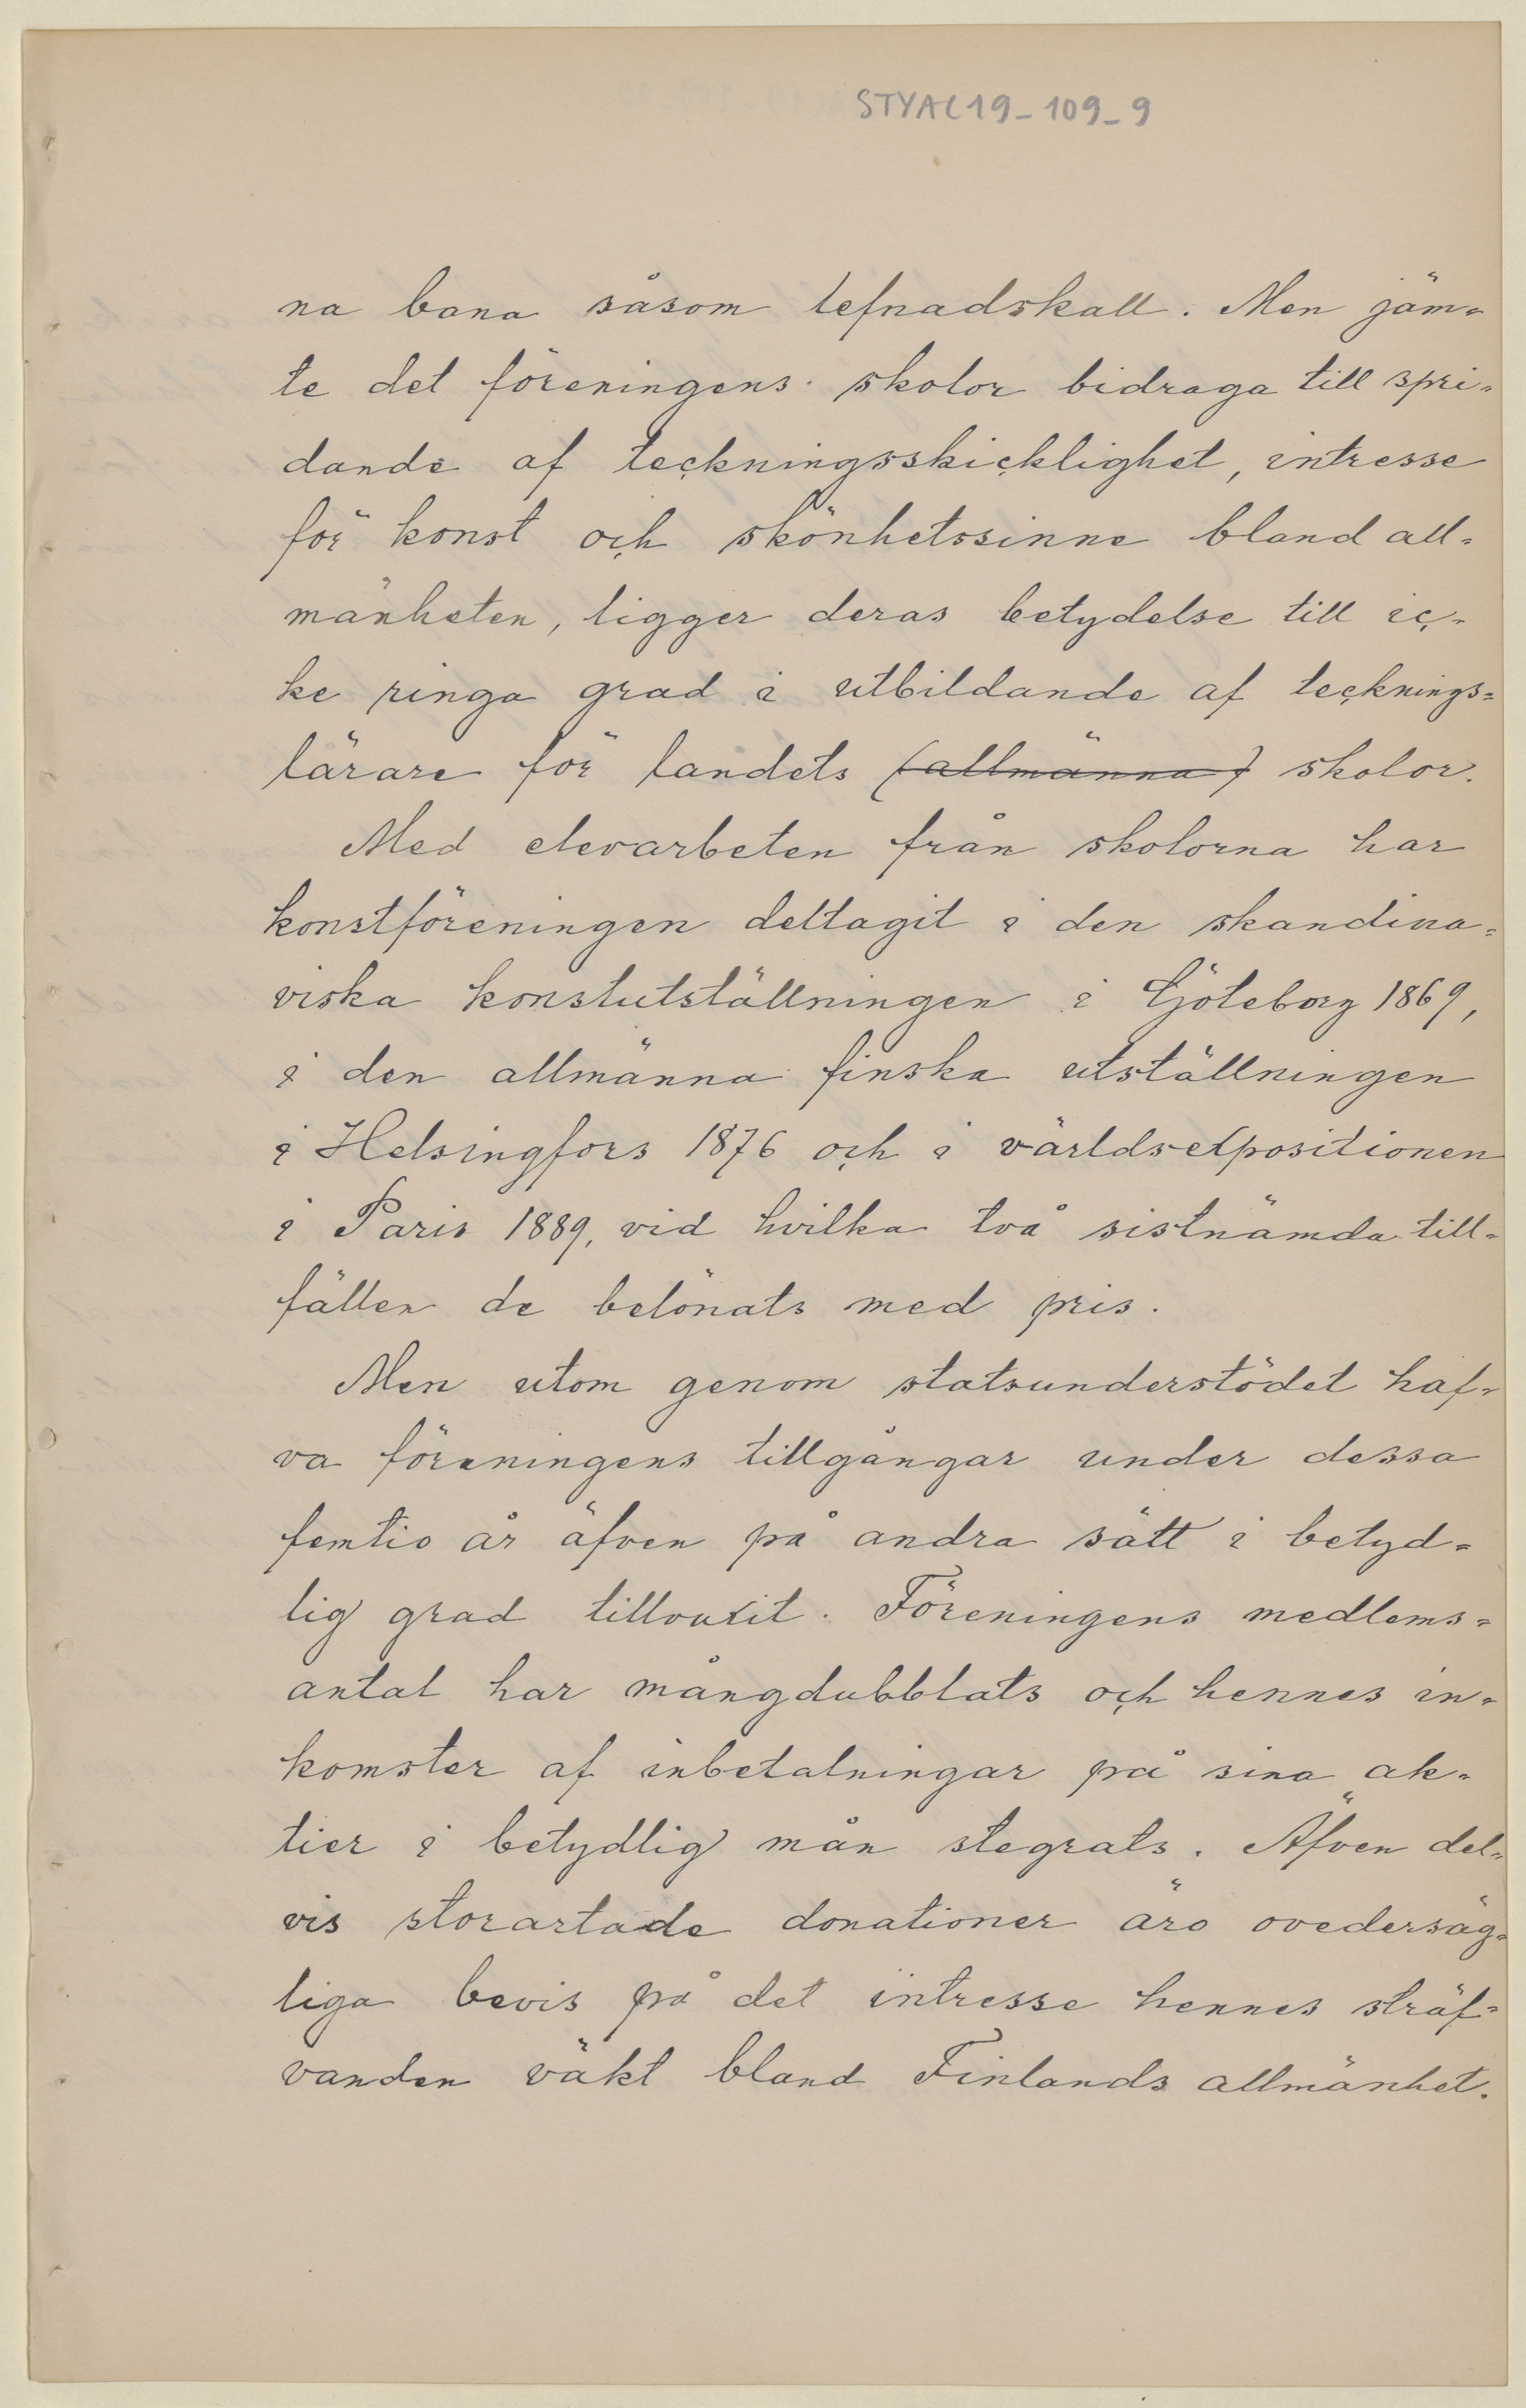 STYAL19_109_9
na bana såsom lefnadskall. Men jäm-
te det föreningens skolor bidraga till spri-
dande af teckningsskicklighet, intresse
för konst och skönhetssinne bland all-
mänheten, ligger deras betydelse till ic-
ke ringa grad i utbildande af tecknings-
lärare för landets (allmänna) skolor.
Med elevarbeten från skolorna har
konstföreningen deltagit i den skandina-
viska konstutställningen i Göteborg 1869,
i den allmänna finska utställningen
i Helsingfors 1876 och i världsexpositionen
i Paris 1889, vid hvilka två sistnämda till-
fällen de belönats med pris.
Men utom genom statsunderstödet haf-
va föreningens tillgångar under dessa
femtio år äfven på andra sätt i betyd-
lig grad tillvuxit. Föreningens medlems-
antal har mångdubblats och hennes in-
komster af inbetalningar på sina ak-
tier i betydlig mån stegrats. Äfven del-
vis storartade donationer äro ovedersäg-
liga bevis på det intresse hennes sträf-
vanden väkt bland Finlands allmänhet.